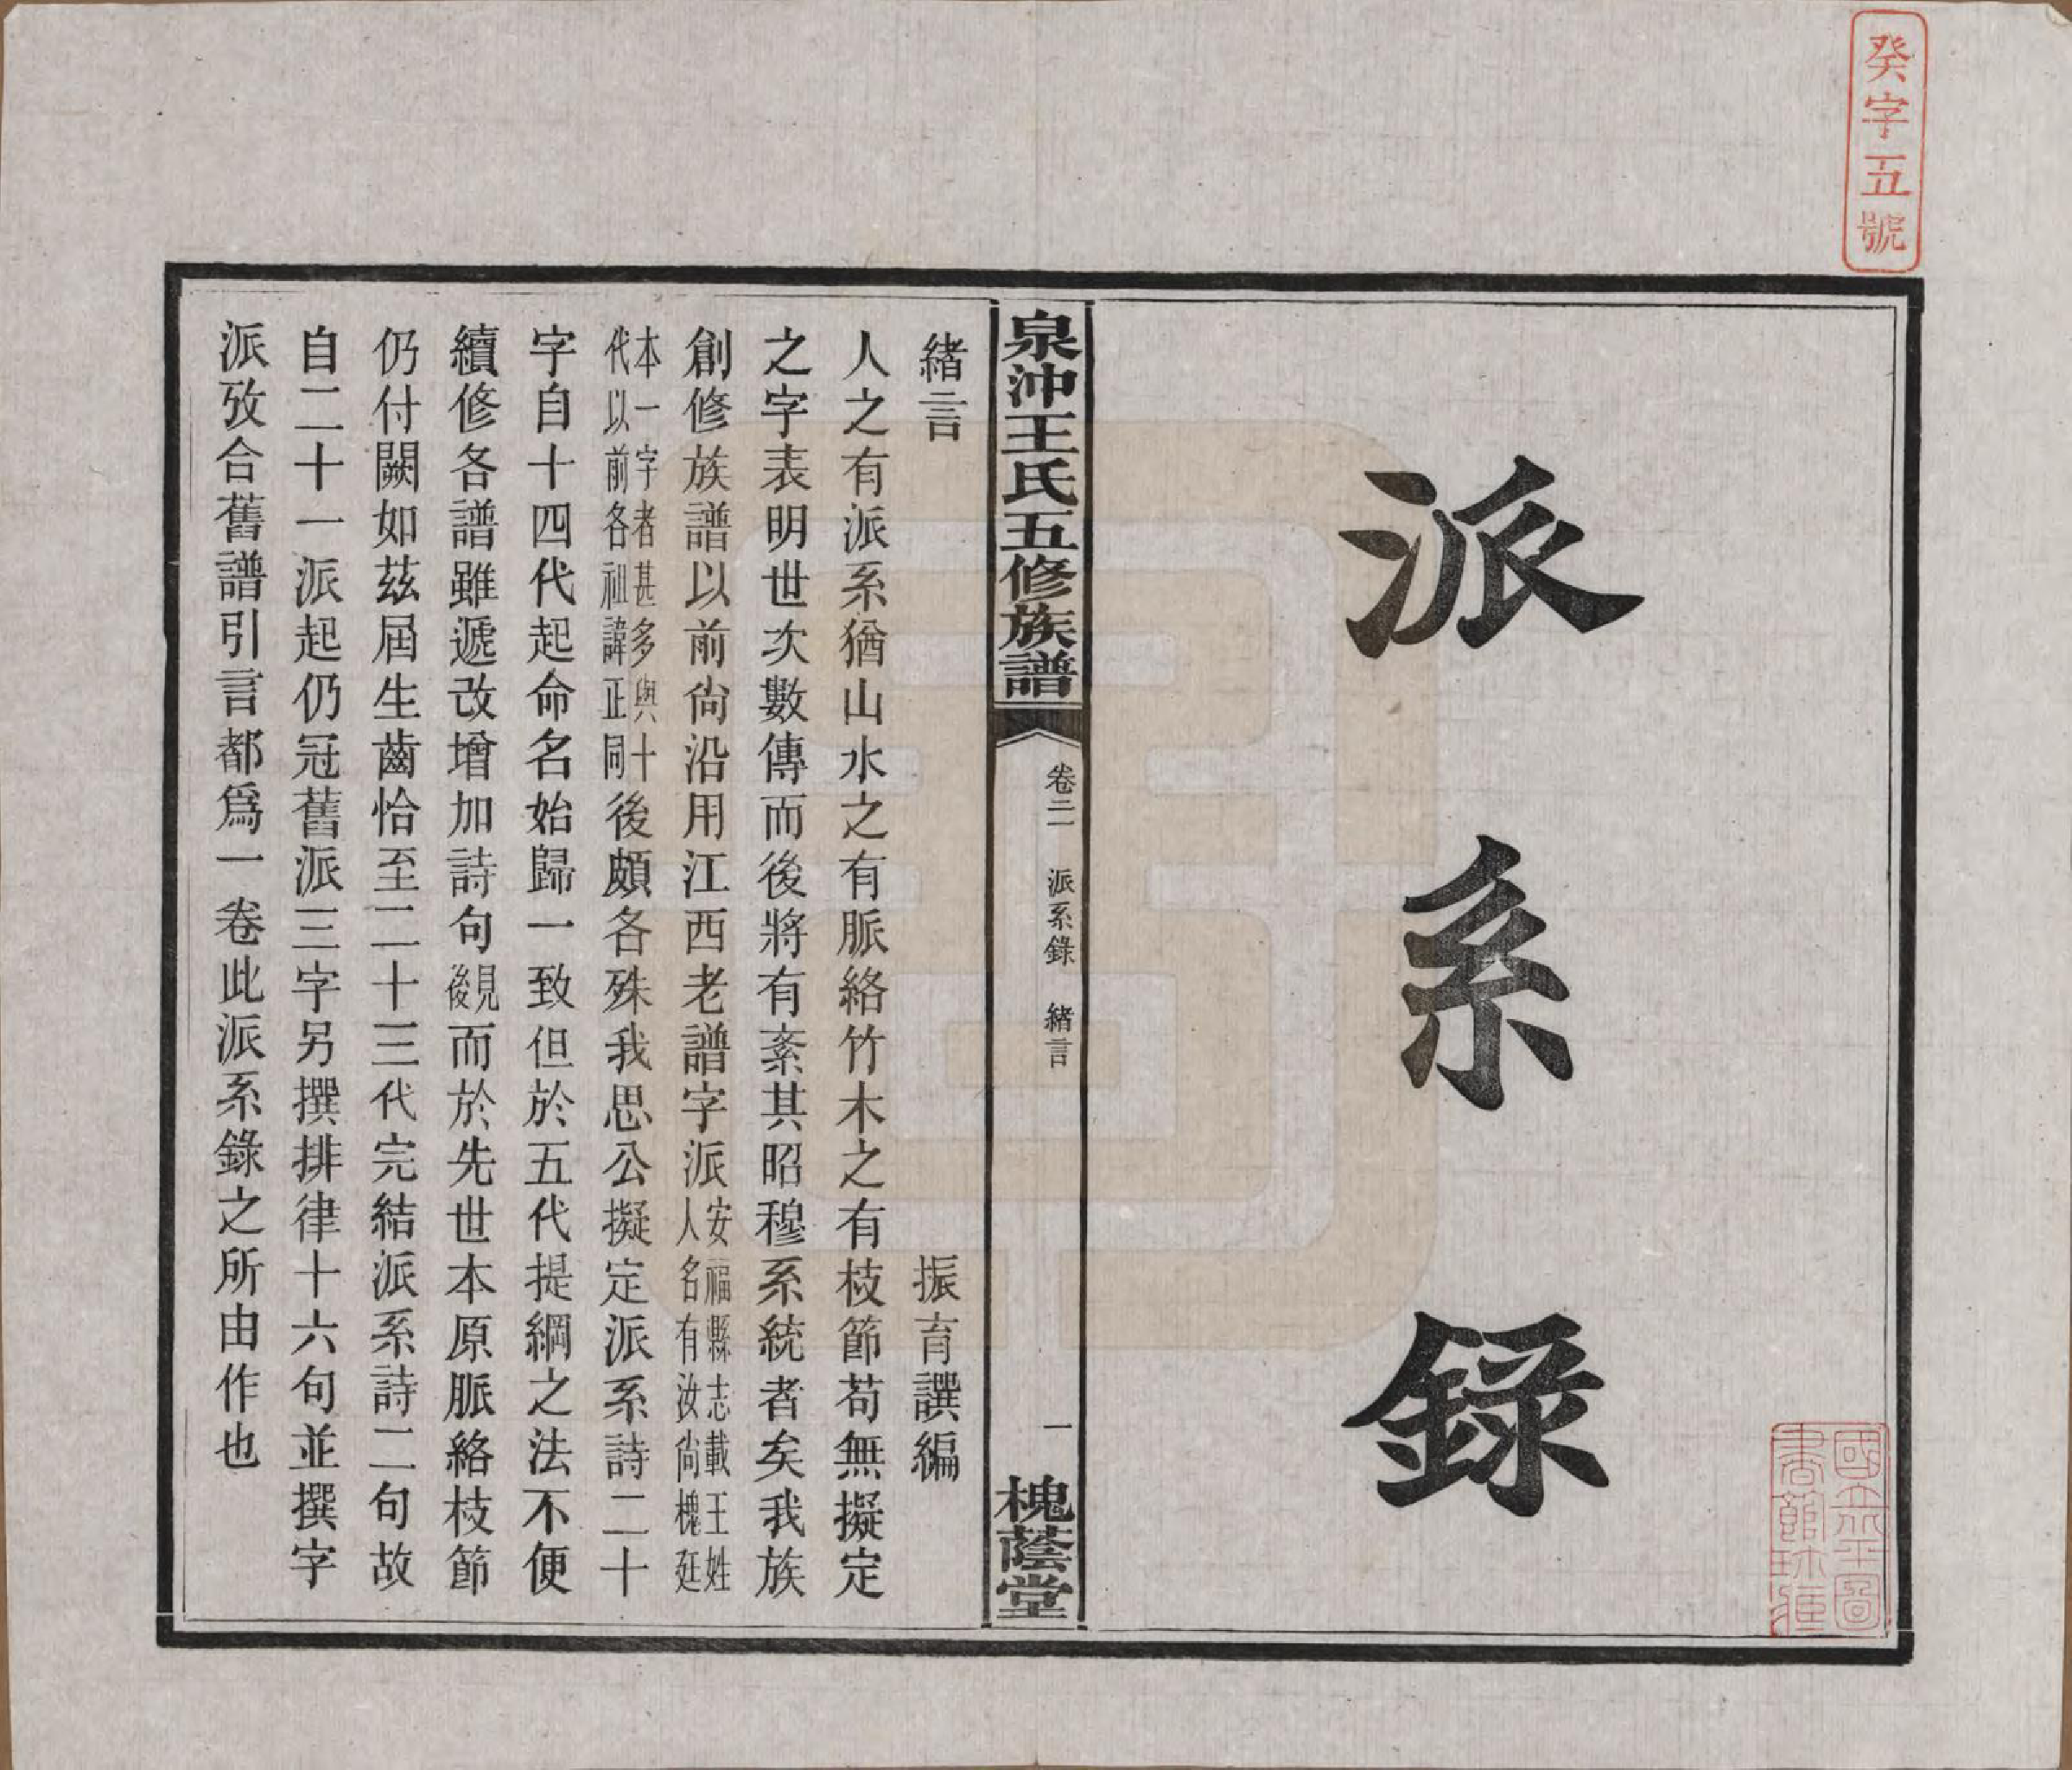 癸字五號
派系錄
國立北平圖
書館珍藏
泉沖王氏五修族譜
卷二 派系錄 緒言
一
槐蔭堂
緒言 振育譔編
人之有派系猶山水之有脈絡竹木之有枝節苟無擬定
之字表明世次數傳而後將有紊其昭穆系統者矣我族
創修族譜以前尙沿用江西老譜字派安福縣志載王姓人名有汝尙槐延
本一字者甚多與十代以前各祖諱正同後頗各殊我思公擬定派系詩二十
字自十四代起命名始歸一致但於五代提綱之法不便
續修各譜雖遞改增加詩句見後而於先世本原脈絡枝節
仍付闕如茲屆生齒恰至二十三代完結派系詩二句故
自二十一派起仍冠舊派三字另撰排律十六句並撰字
派攷合舊譜引言都爲一卷此派系錄之所由作也